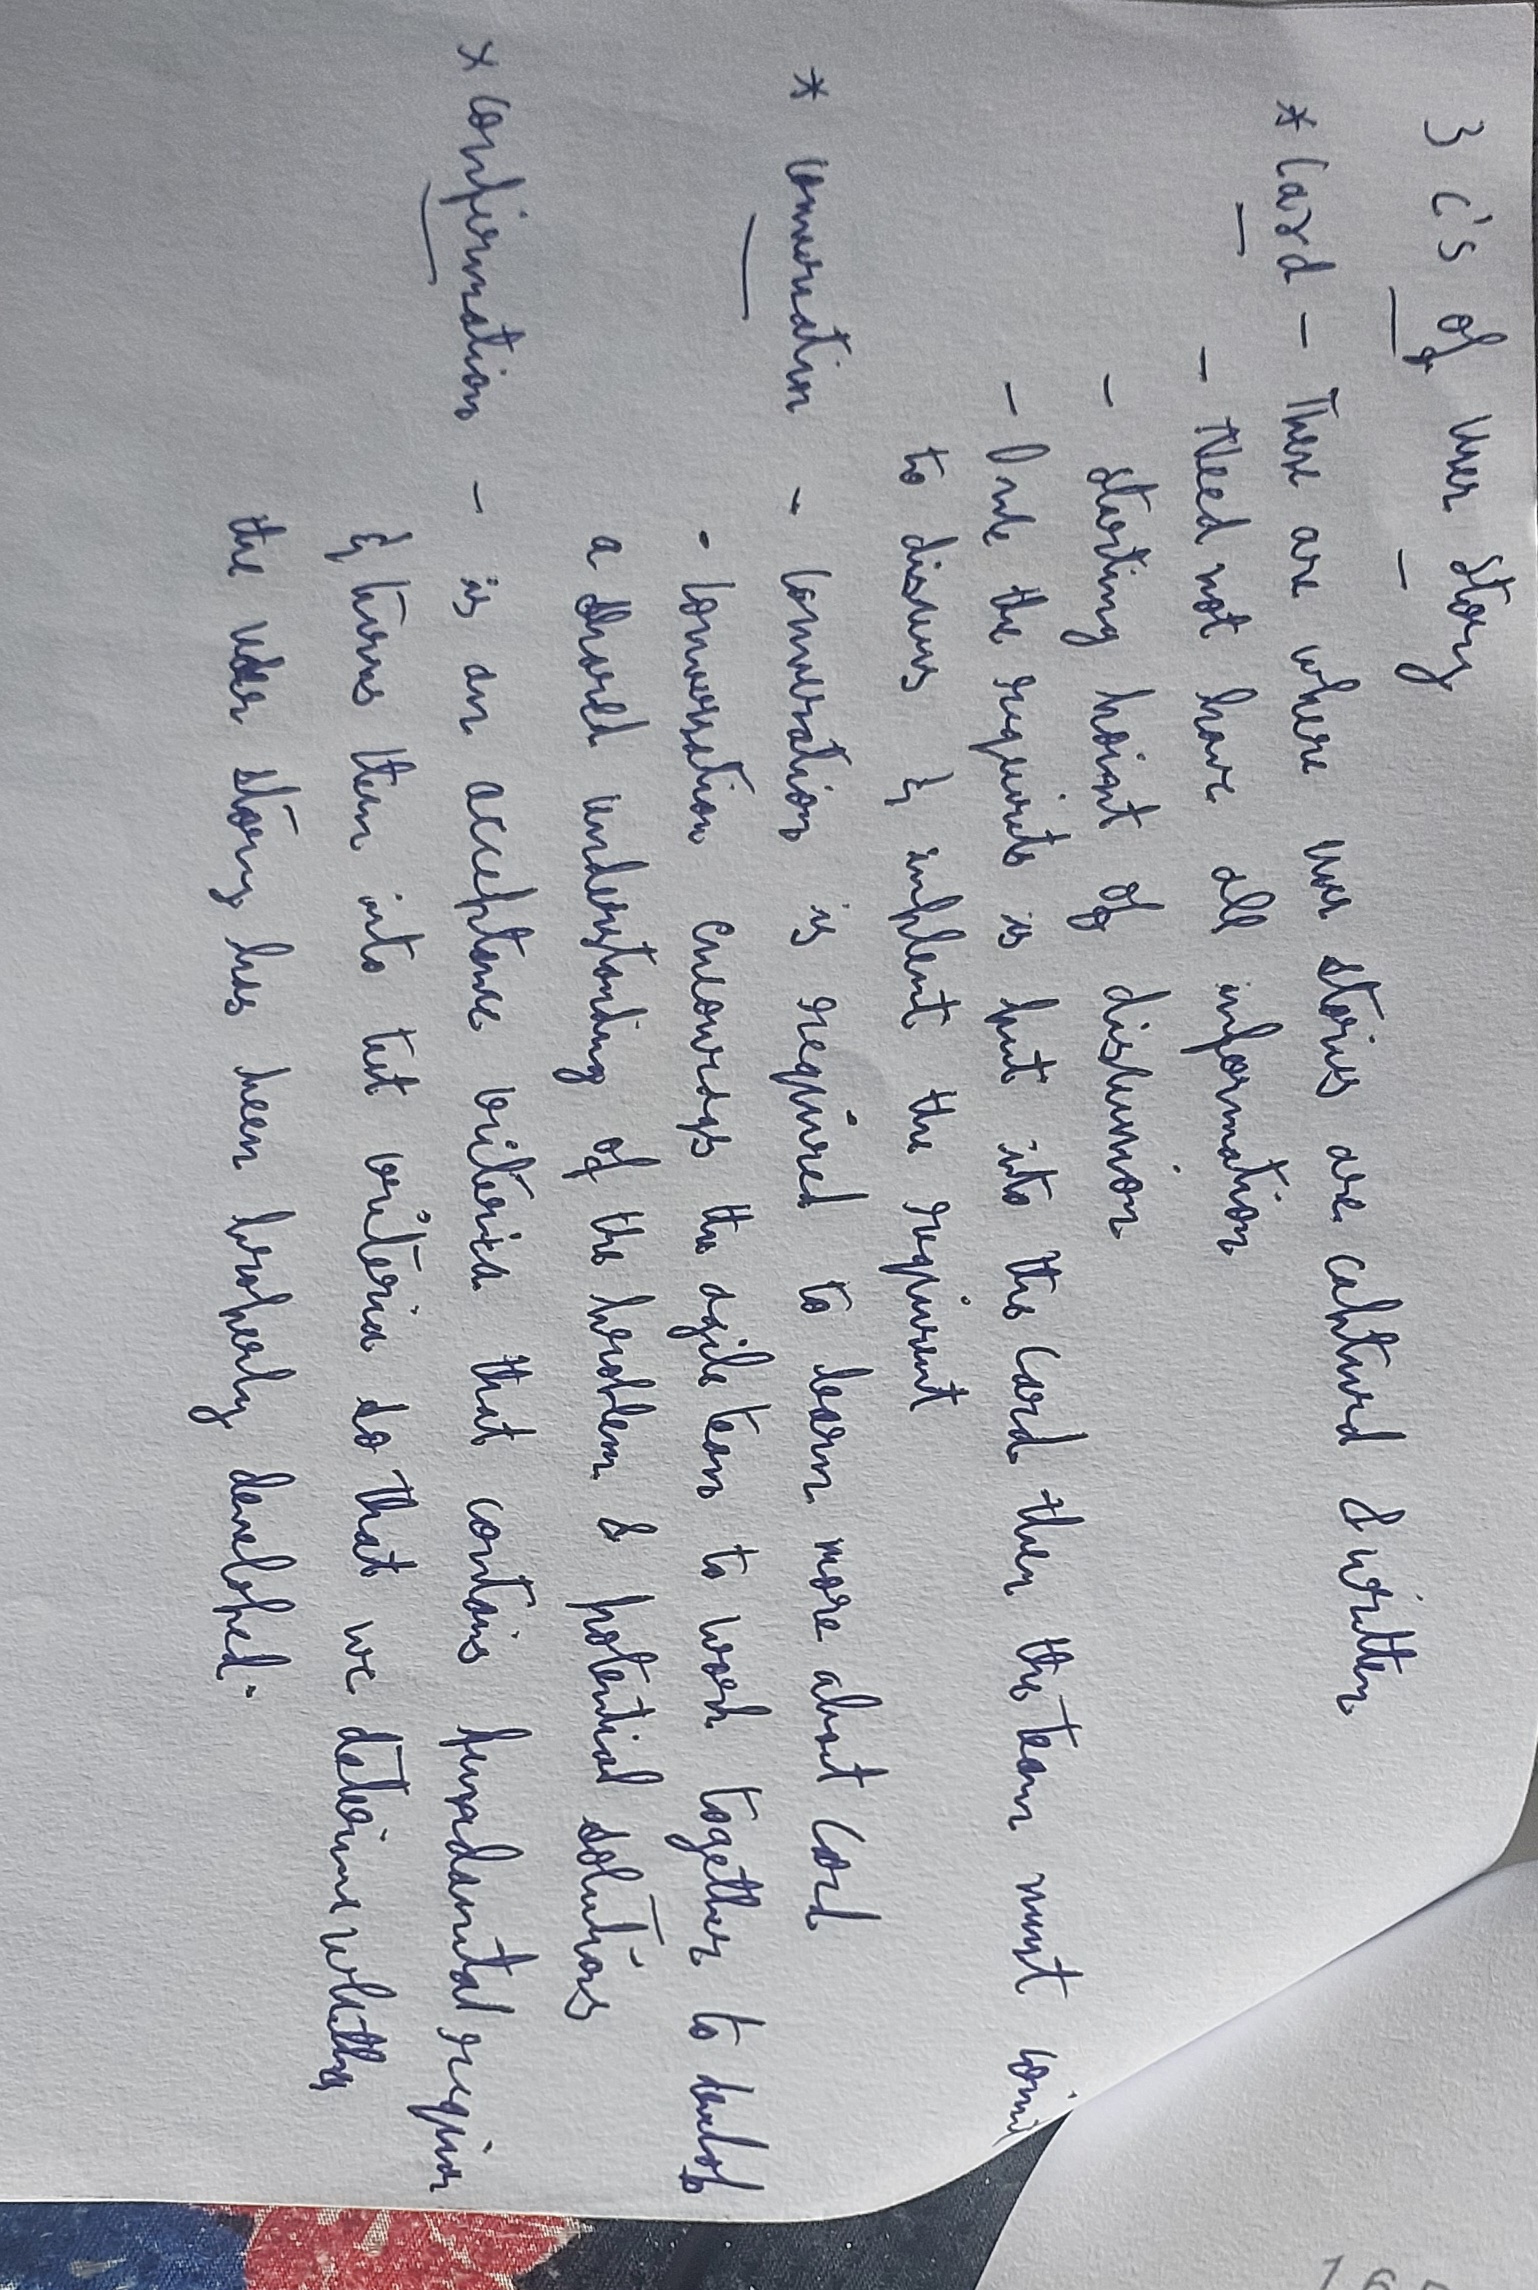 3 C's of User Story
* Card - These are where user stories are captured & written
- Need not have all information
- starting point of discussion
- Once the requirents is put into the card then the team must
to discuss & implent the requirent
* Conversation - Conversation is required to learn more about Card
- Conversation encourags the agile team to work together to
a shared understanding of the problem & potential solutions
* Confirmation - is an acceptance criteria that contains fundamental
& turns them into test criteria so that we determine whether
the user story has been properly developed.